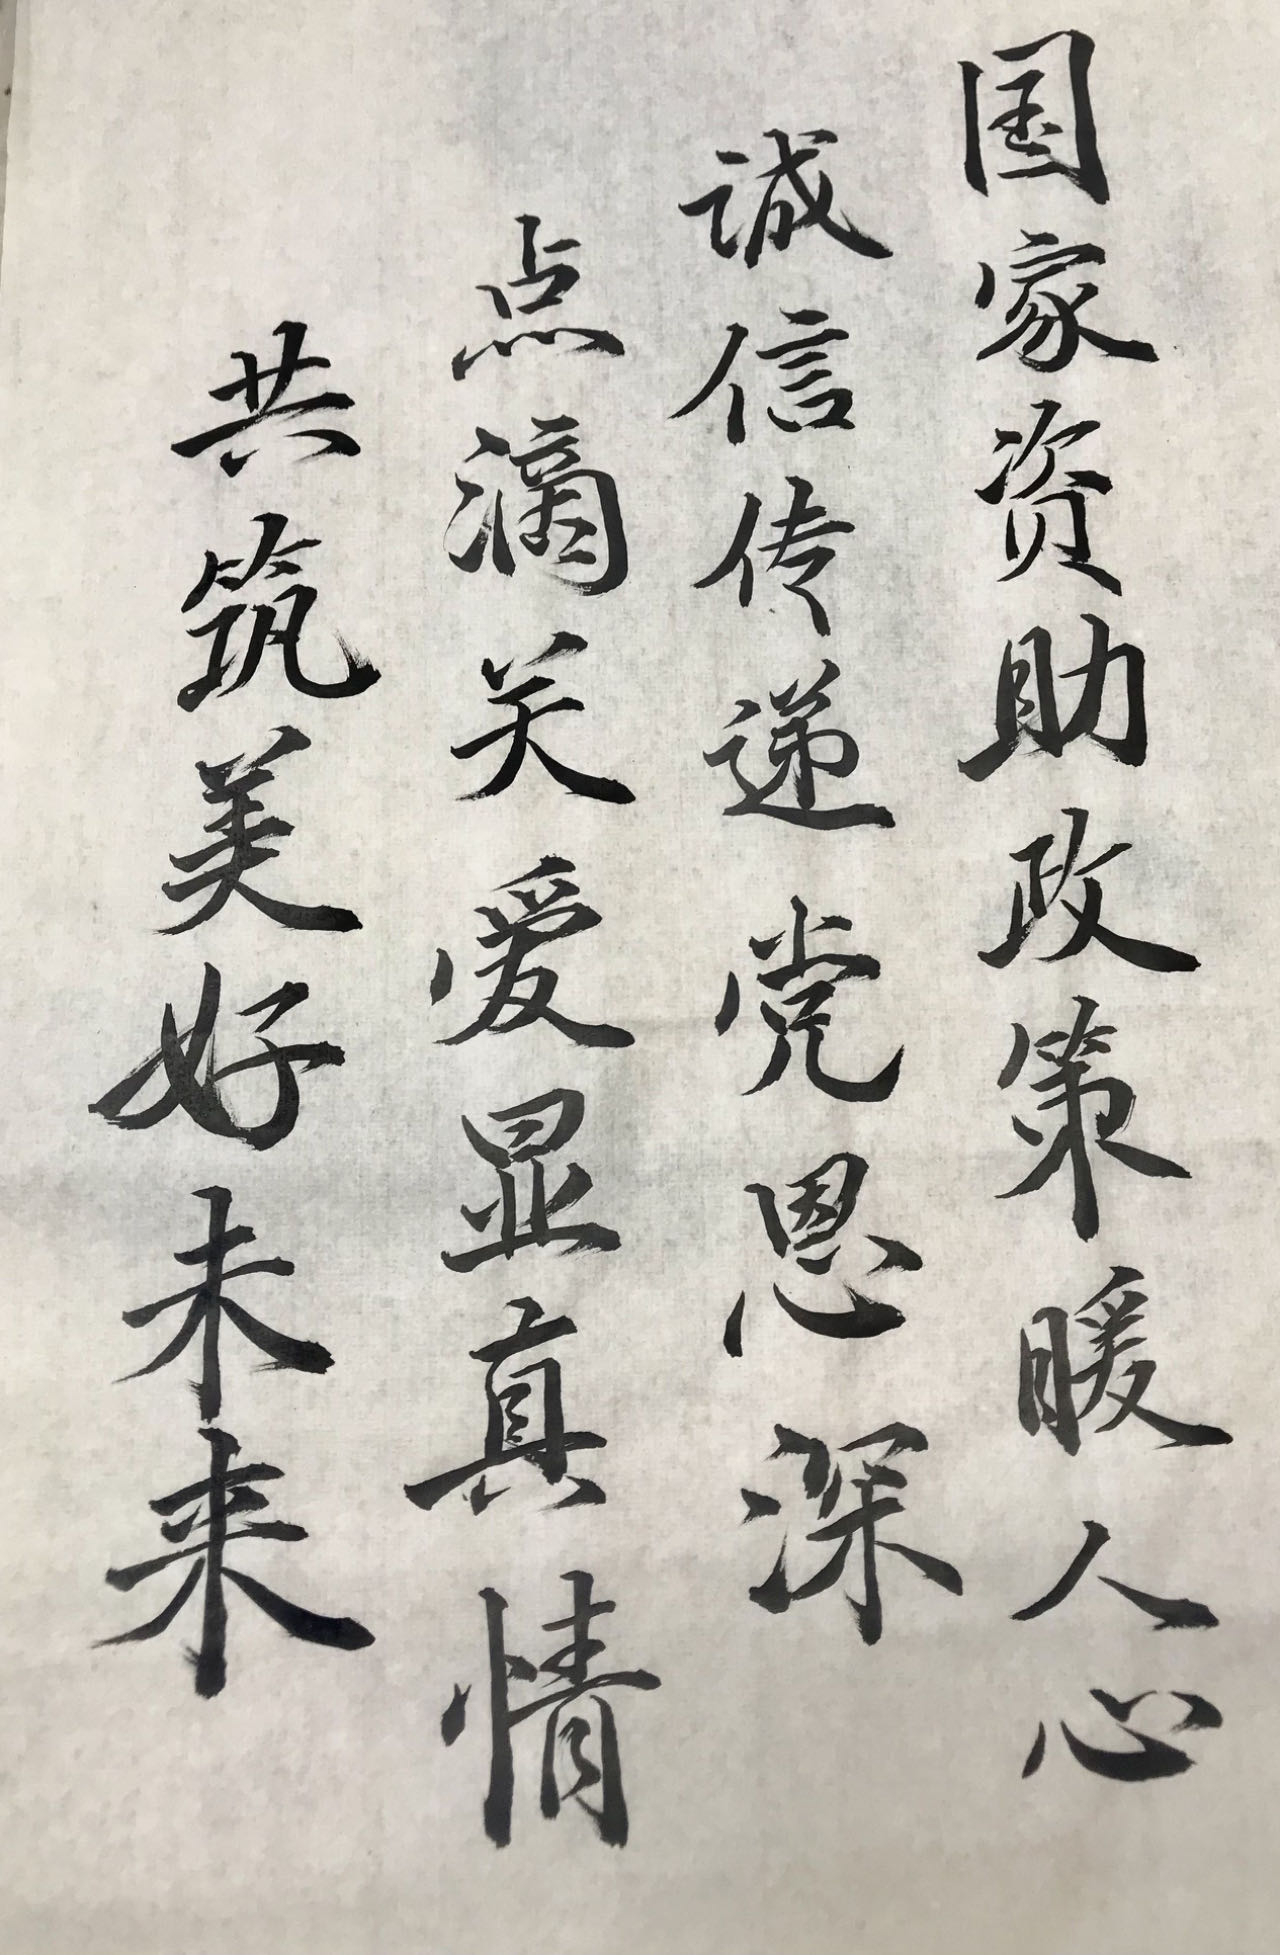 国家资助政策暖人心
诚信传递党恩深
点滴关爱显真情
共筑美好未来